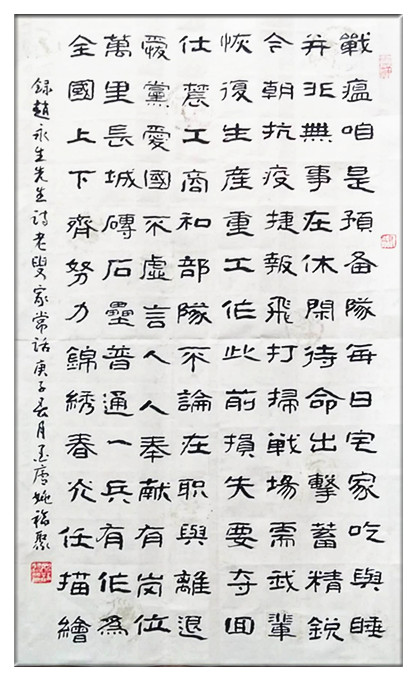 戰瘟咱是預备隊每日宅家吃與睡
并非無事在休閑待命出擊蓄精銳
今朝抗疫捷報飛打掃戰場需我輩
恢復生産重工作此前損失要夺回
仕農工商和部隊不論在职與離退
愛黨愛國不虛言人人奉献有岗位
萬里長城磚石壘普通一兵有作爲
全國上下齊努力錦綉春光任描繪
録趙永生先生詩老叟家常話庚子春月唐姚福聚